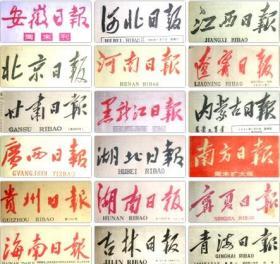 安徽日报
周末刊
河北日报
HEBEI RIBAO
江西日报
JIANGXI RIBAO
北京日报
河南日报
HENAN RIBAO
辽宁日报
LIAONING RIBAO
甘肃日报
GANSU RIBAO
黑龙江日报
内蒙古日报
廣西日報
GVANGJSIH YIZBAO
湖北日报
HUBEI RIBAO
南方日報
周末扩大版
贵州日报
GUIZHOU RIBAO
湖南日报
HUNAN RIBAO
宁夏日报
NINGXIA RIBAO
海南日报
吉林日报
JILIN RIBAO
青海日报
QINGHAI RIBAO